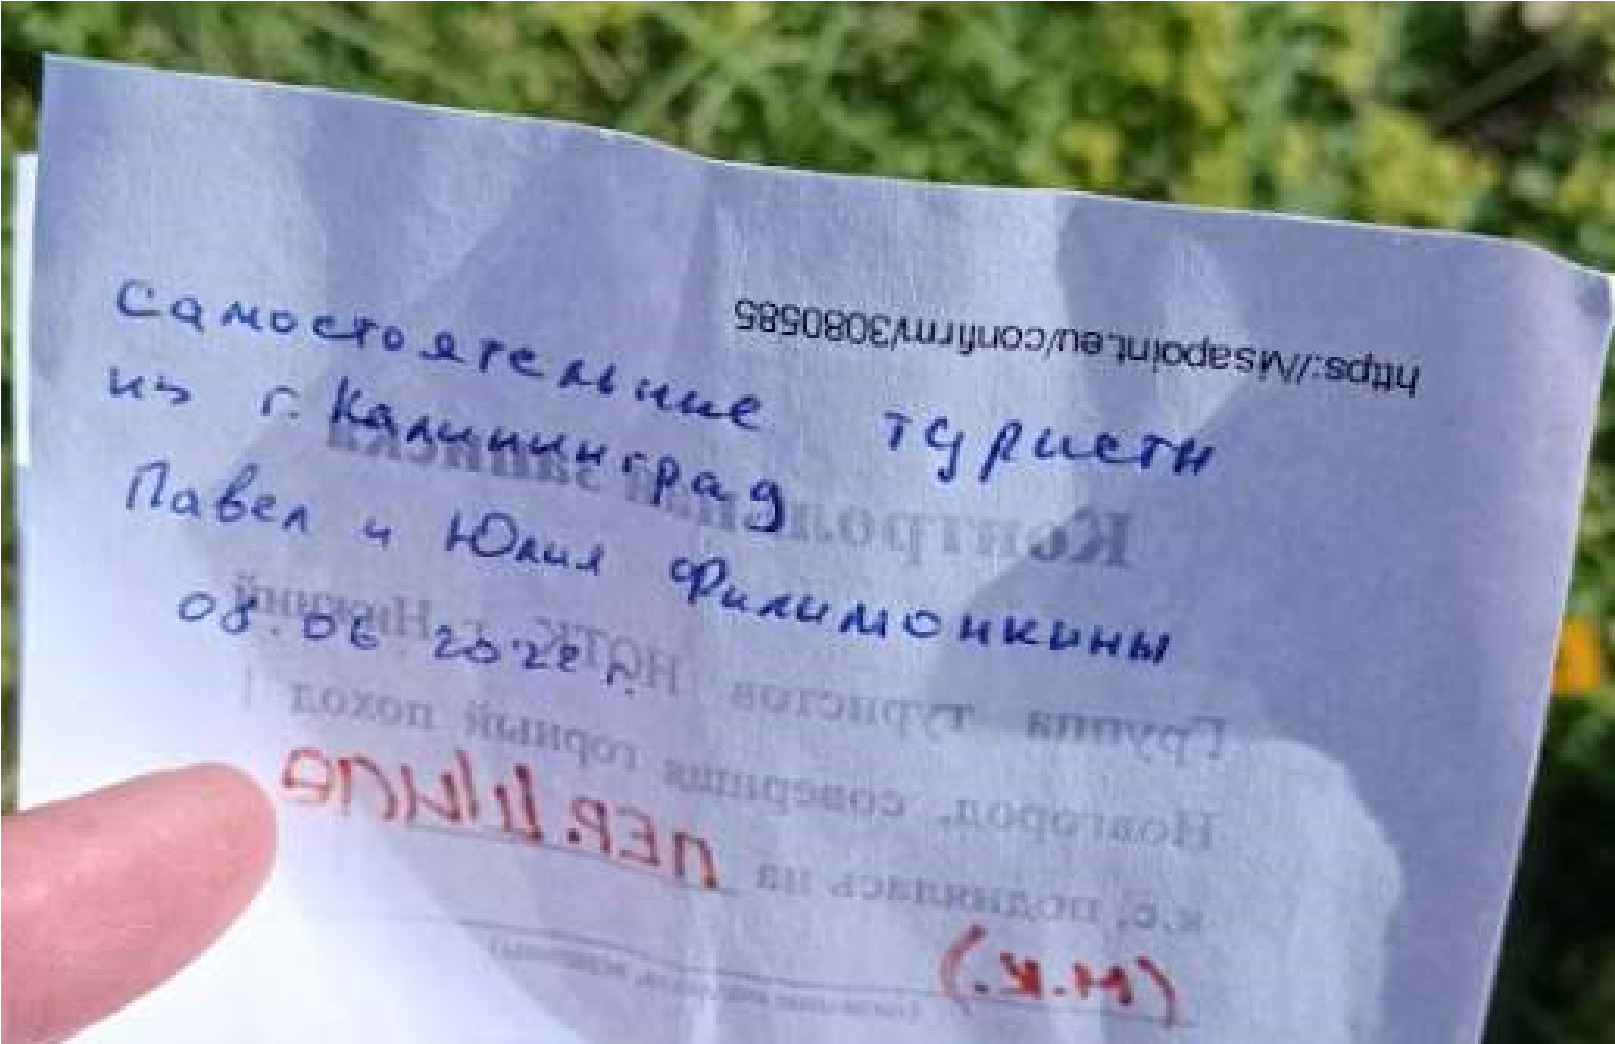 https://Msapoint.eu/confirm/3080585
Самостоятельние туристы
из г. Калининград
Павел и Юлия Филимонкины
08.06 2022 г.
Контрольная записка
Группа туристов НОТК г. Нижний
Новгород, совершив горный поход
к.с. поднялась на ПЕР. ШИПА
(Н.К.)